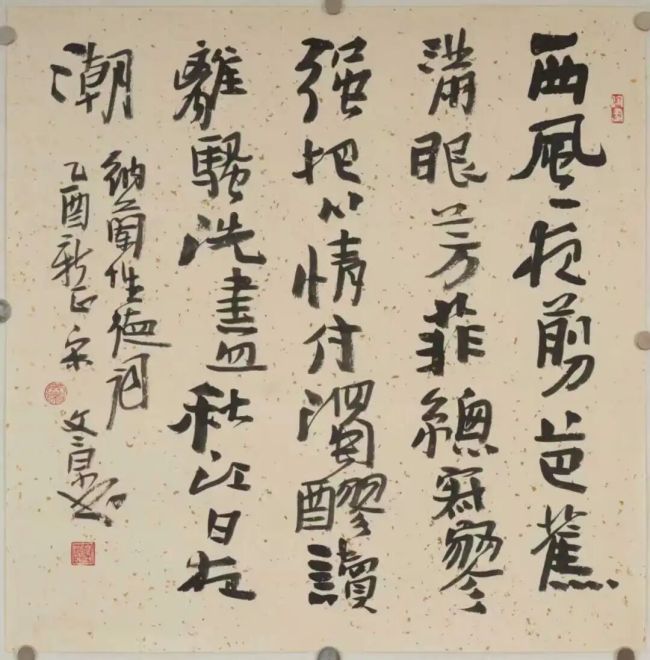 西風一夜剪芭蕉
滿眼芳菲總寂寥
强把心情付濁醪讀
離騷洗盡秋江日夜
潮
納蘭性德詞
乙酉新正宋文京